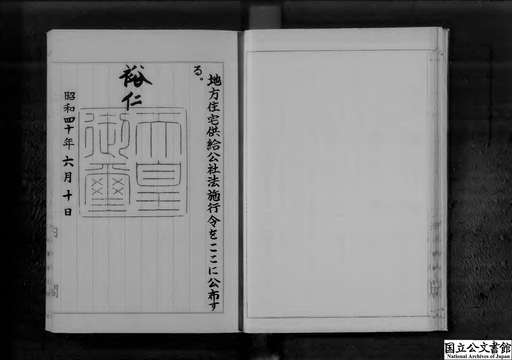 地方住宅供給公社法施行令をここに公布す
る。
裕仁
天皇
御璽
昭和四十年六月十日
国立公文書館
National Archives of Japan